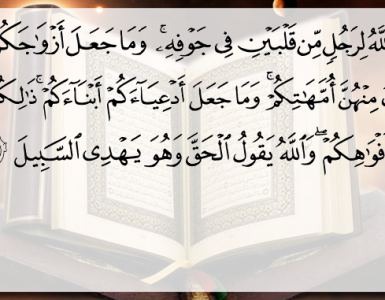 لِرَجُلٍ مِّن قَلْبَيْنِ فِى جَوْفِهِۦ ۚ وَمَا جَعَلَ أَزْوَٰجَكُ
مِنْهُنَّ أُمَّهَٰتِكُمْ ۚ وَمَا جَعَلَ أَدْعِيَآءَكُمْ أَبْنَآءَكُمْ ۚ ذَٰلِكُ
فْوَٰهِكُمْ ۖ وَٱللَّهُ يَقُولُ ٱلْحَقَّ وَهُوَ يَهْدِى ٱلسَّبِيلَ